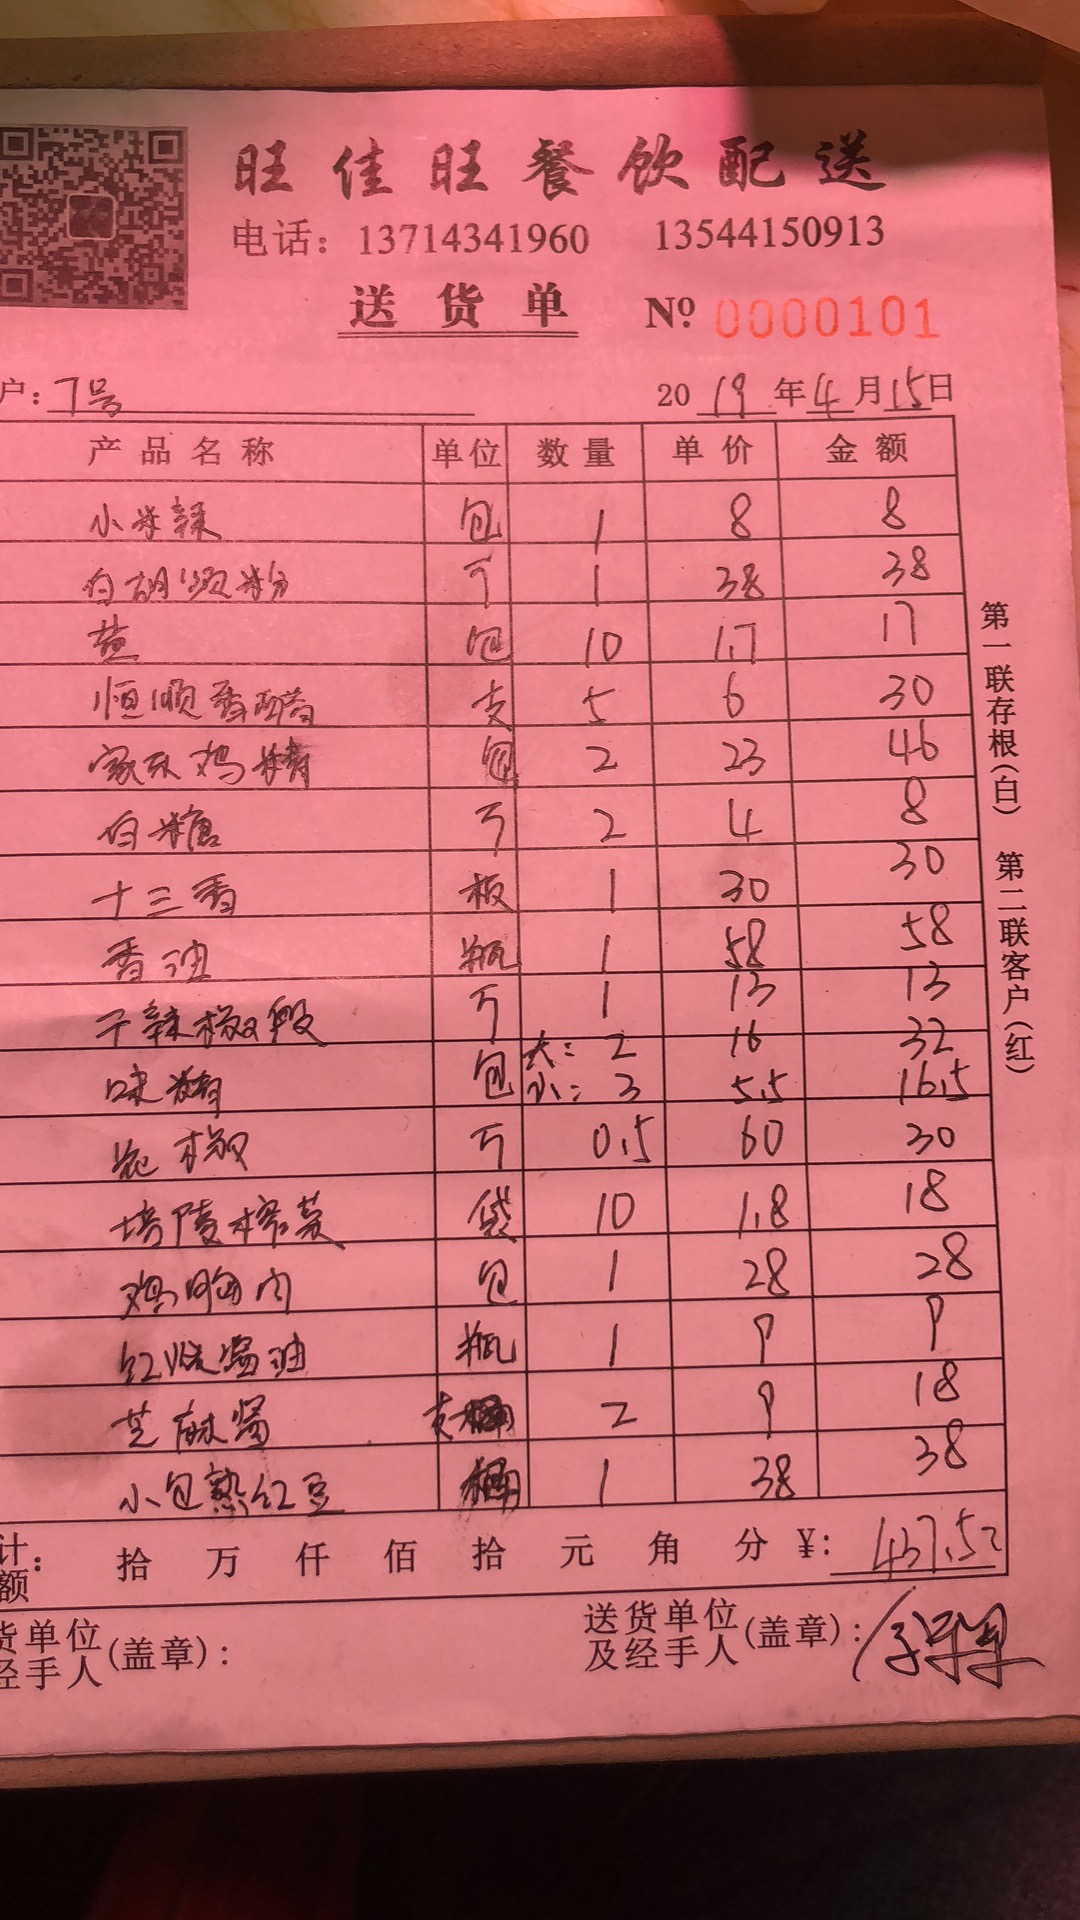 旺佳旺餐饮配送
电话：13714341960 13544150913
送货单 Nº 0000101
户：7号 2019年4月15日
产品名称 单位 数量 单价 金额
小米辣 包 1 8 8
白胡须粉 亍 1 38 38
盐 包 10 1.7 17
恒顺香醋 支 5 6 30
家乐鸡精 包 2 23 46
白糖 亍 2 4 8
十三香 板 1 30 30
香油 瓶 1 58 58
干辣椒段 亍 1 13 13
味精 包 大：2 16 32
小：3 5.5 16.5
花椒 亍 0.5 60 30
培陵榨菜 袋 10 1.8 18
鸡胸肉 包 1 28 28
红烧酱油 瓶 1 9 9
芝麻酱 支 2 9 18
小包熟红豆 1 38 38
计：
额 拾 万 仟 佰 拾 元 角 分 ¥：437.5
货单位
经手人(盖章)：
送货单位
及经手人(盖章)：
第一联存根(白) 第二联客户(红)